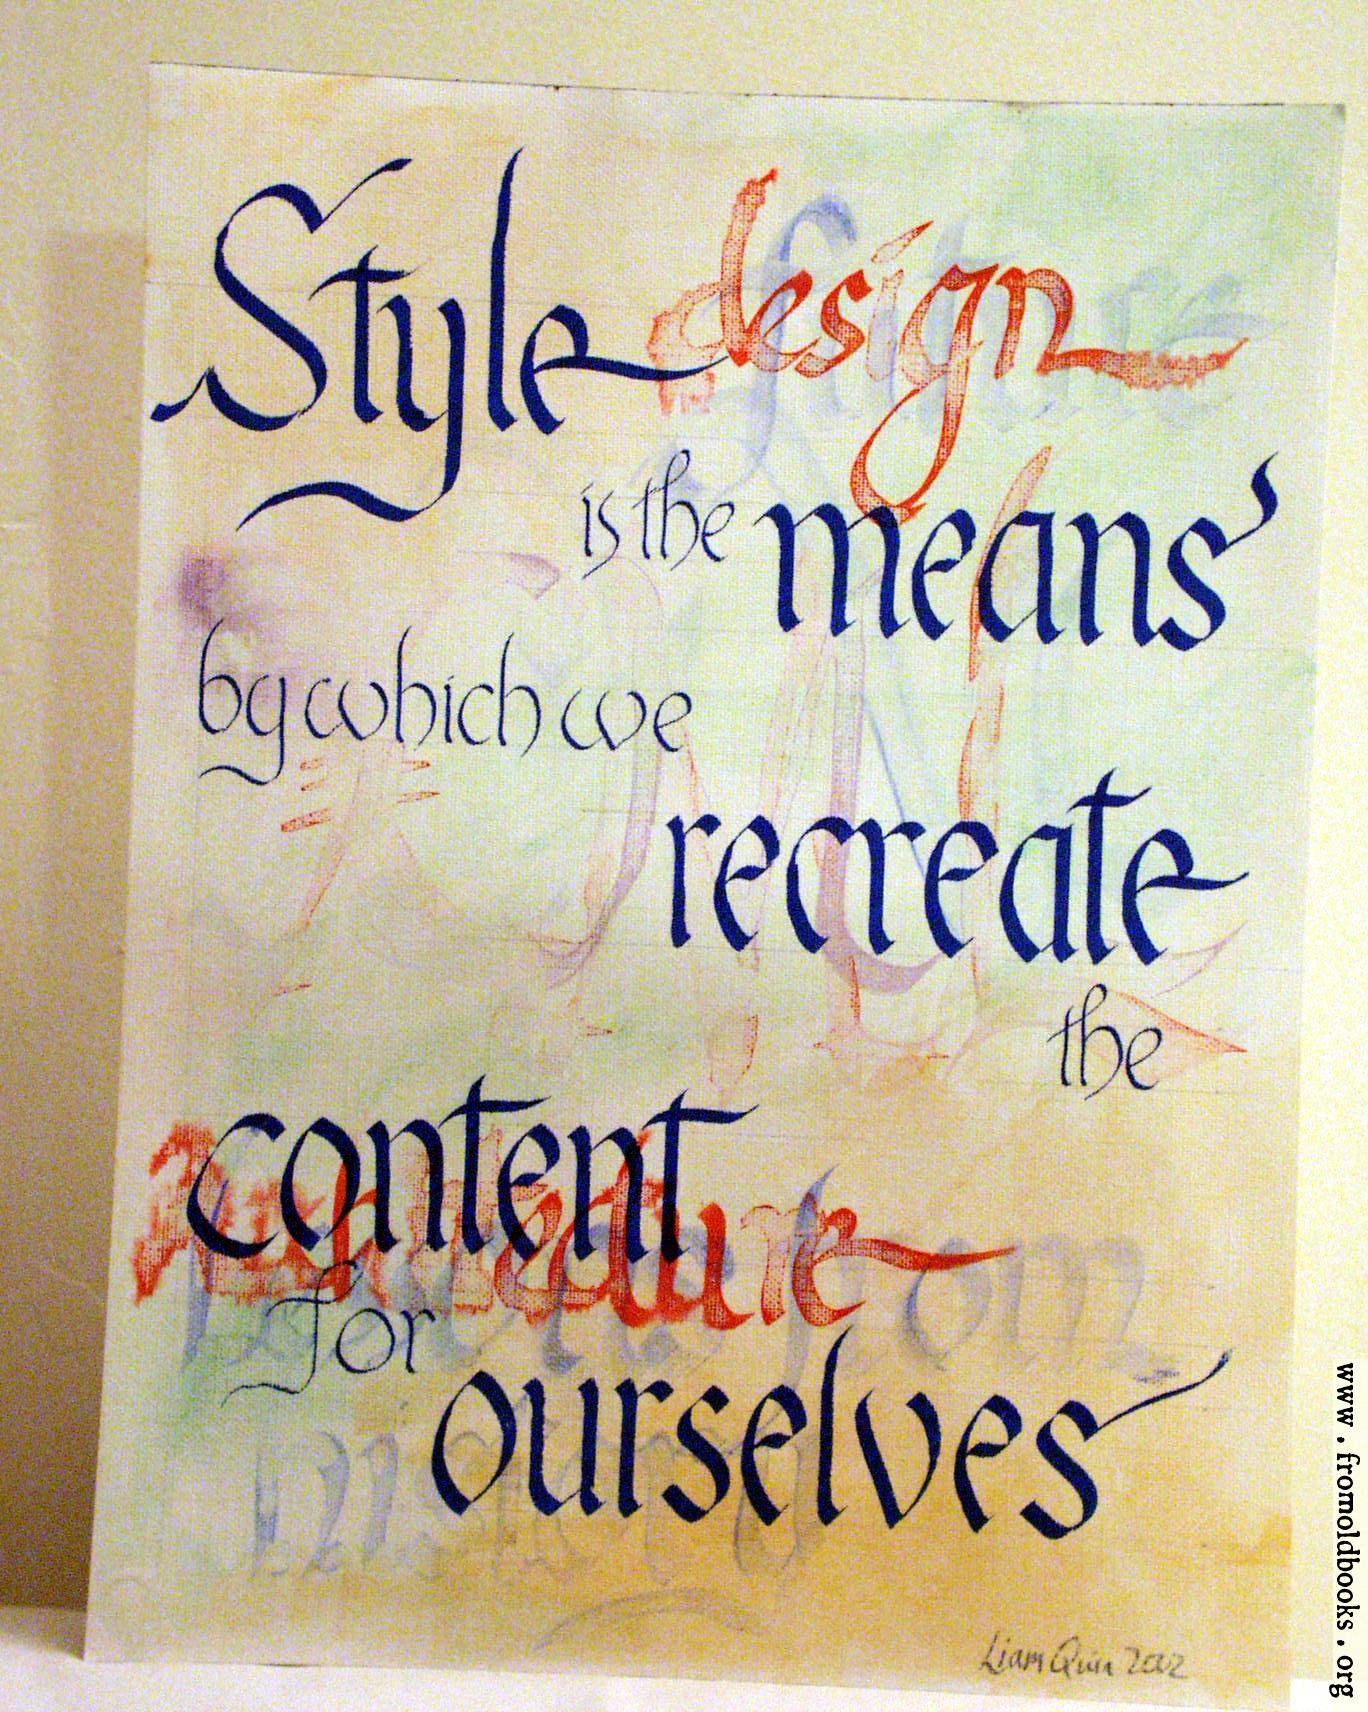 Style design
is the means
by which we
recreate
the
content
for
ourselves
Liam Quin 2012
www.fromoldbooks.org